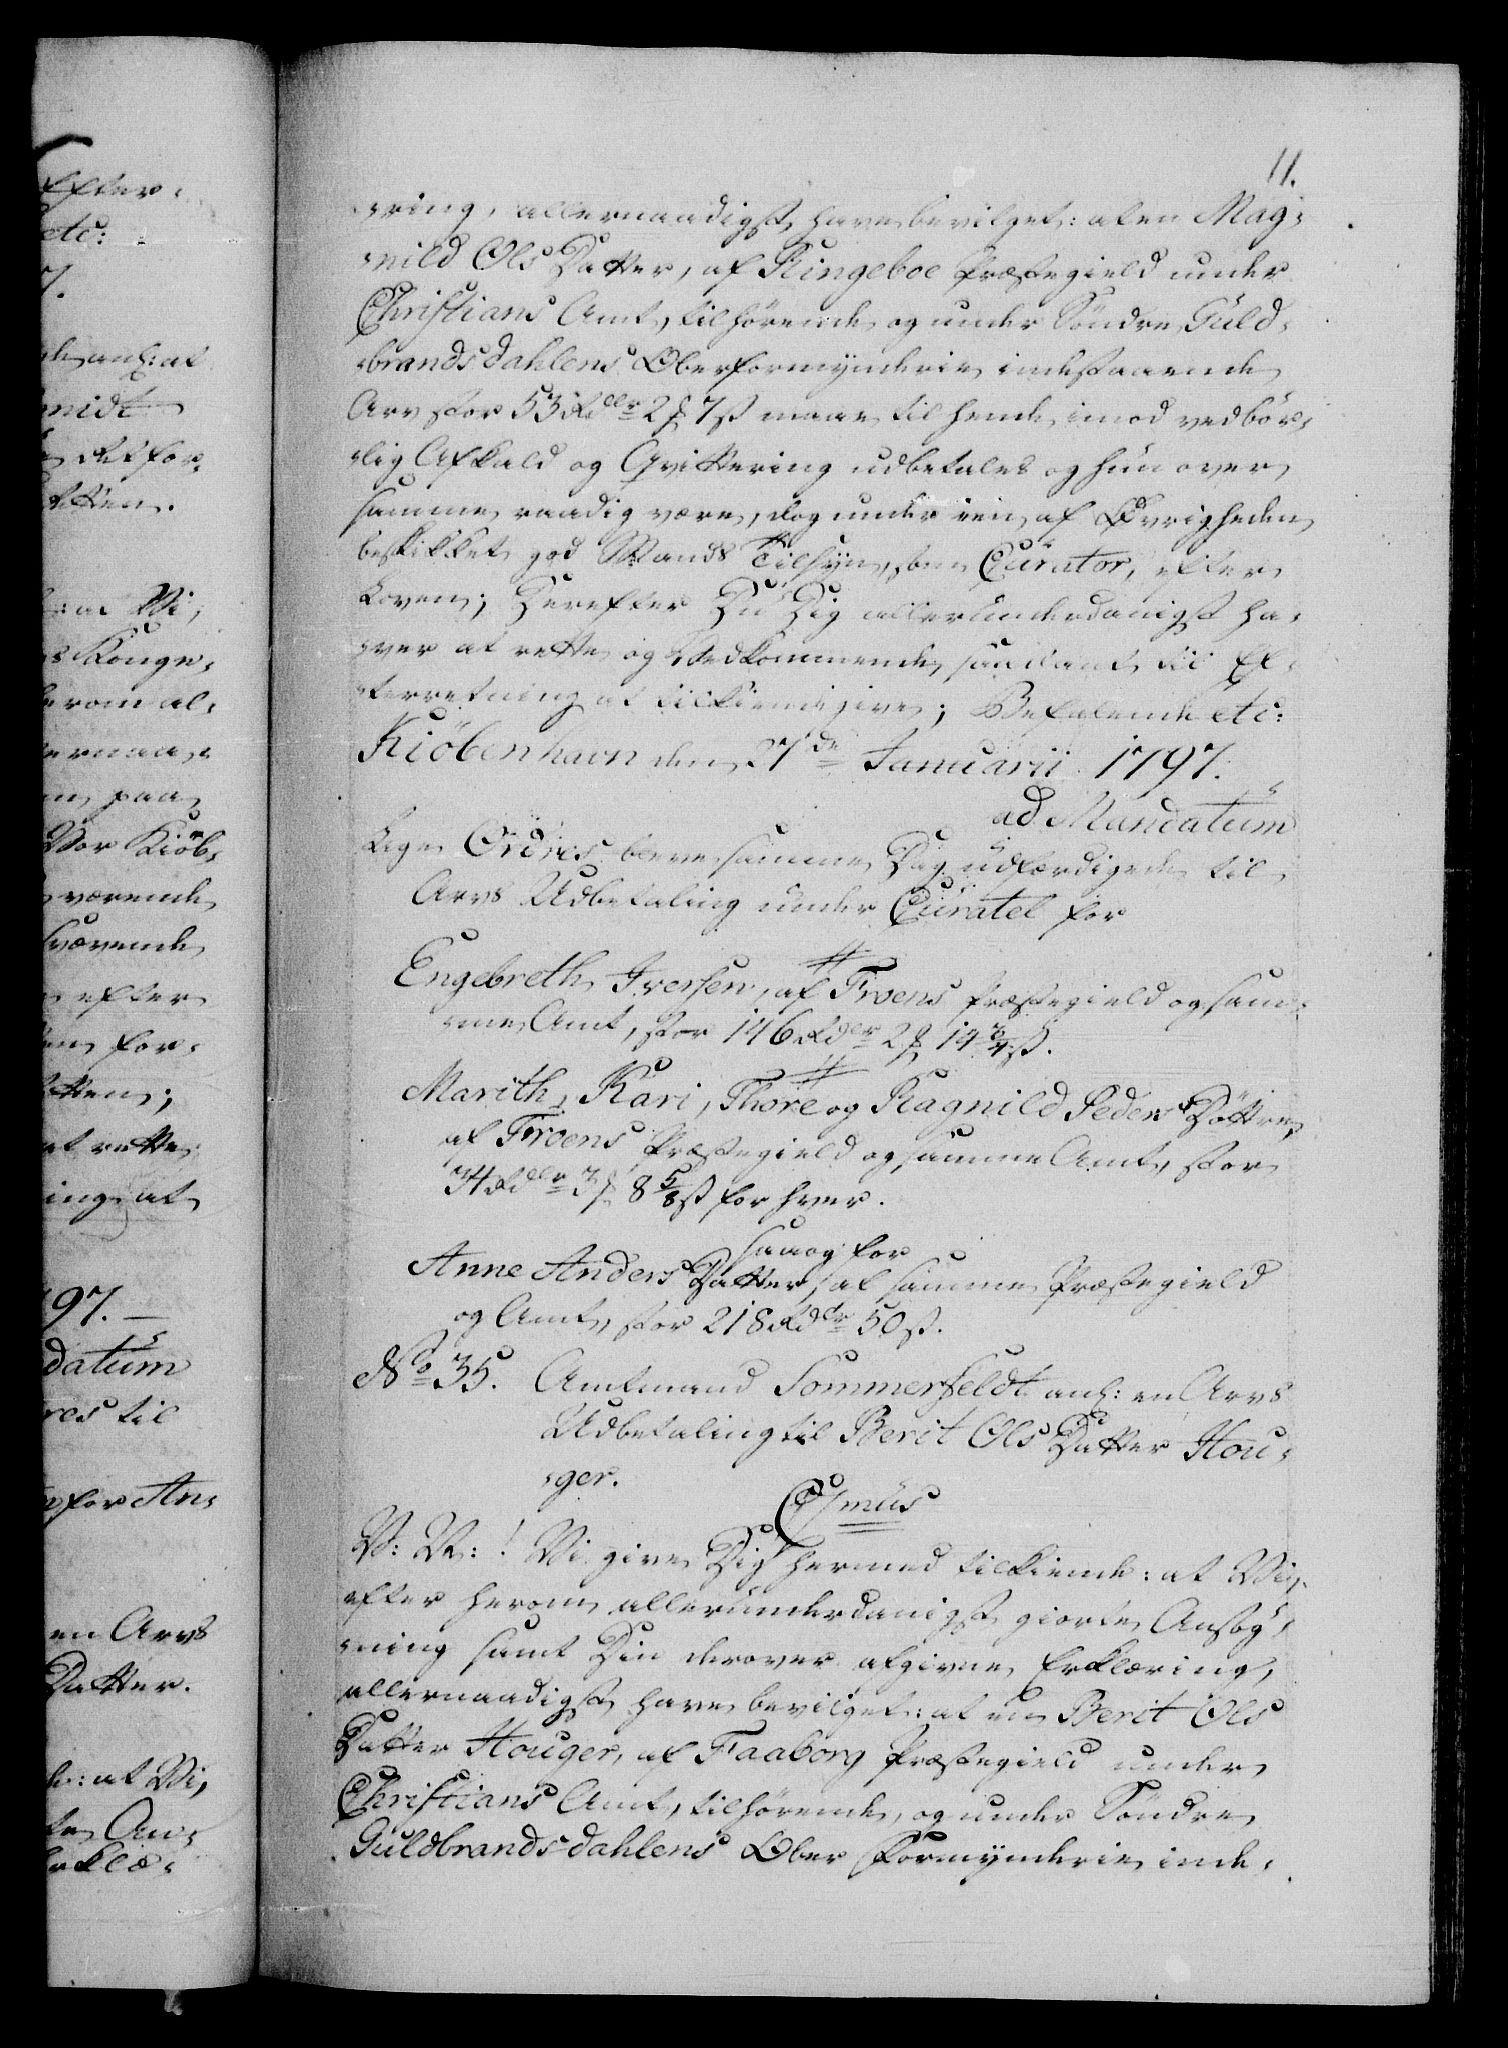 11.
-ring, allernaadigst have bevilget: at en Mag-
-nild Ols Datter, af Ringeboe Præstegield under
Christians Amt, tilhörende og under Söndre Guld-
-brandsdahlens Oberformynderie indestaaende
Arv stor 53 Rdlr 2 ß 7 ß maae til hende, imod vedbör-
-lig Afkald og Qvittering udbetales og hun over
samme raadig være, dog under een af Övrigheden
beskikket god Mands Tilsyn, som Curator, efter
Loven; Herefter Du Dig allerunderdanigst ha-
-ver at rette og Vedkommende saadant til Ef-
-terretning at tilkiendegive; Befalende etc:
Kiöbenhavn den 27de Januarii 1797.
ad Mandatum
Lige Ordres bleve samme Dag udfærdigede til
Arvs Udbetaling under Curatel for
Engebreth Iversen, af Froens Præstegield og sam-
-me Amt, stor 146 Rdlr 2 ß 14 3/4 ß.
Marith, Kari, Thore og Ragnild Peders Döttre,
af Froens Præstegield og samme Amt, stor
34 Rdlr 3 ß 8 5/8 ß for hver.
saaog for
Anne Anders Datter, af samme Præstegield
og Amt, stor 218 Rdlr 50 ß.
No 35. Amtmand Sommerfeldt anl: en Arvs
Udbetaling til Berit Ols Datter Hou-
-ger.
C7mus
V: V: ! Vi give Dig hermed tilkiende: at Vi,
efter herom allerunderdanigst giorde Ansög-
-ning samt Din derover afgivne Erklæring,
allernaadigst have bevilget: at en Berit Ols
Datter Houger, af Faaborg Præstegield under
Christians Amt, tilhörende, og under Söndre
Guldbrandsdahlens Ober Formynderie inde-